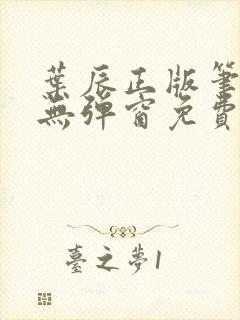 葉辰正版筆
無彈窗免費
臺之夢1